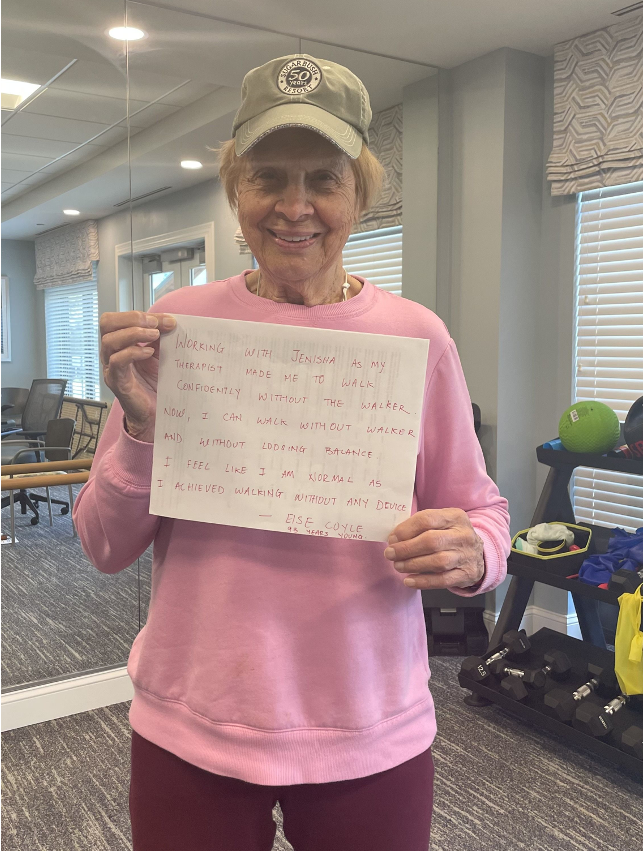 SUGARBUSH
50
YEARS
RESORT
WORKING WITH JENISHA AS MY
THERAPIST MADE ME TO WALK
CONFIDENTLY WITHOUT THE WALKER.
NOW, I CAN WALK WITHOUT WALKER
AND WITHOUT LOOSING BALANCE.
I FEEL LIKE I AM NORMAL AS
I ACHIEVED WALKING WITHOUT ANY DEVICE
— ElSE COYLE
YEARS YOUNG
12.5